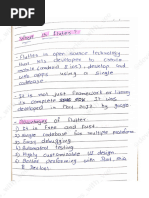 What is Flutter?
- Flutter is open source technology
that has developed to create
mobile (android & ios), desktop and
web apps using a single
codebase.
- It is not just framework or library
is complete SDK. It was
developed in May 2017 by google
Advantages of Flutter
- It is Fast and Free.
- Single codebase for multiple platforms
- Easy debugging
- Automated testing
- Highly customizable UI design
- Better performing with Dart, Fire
& Docker.